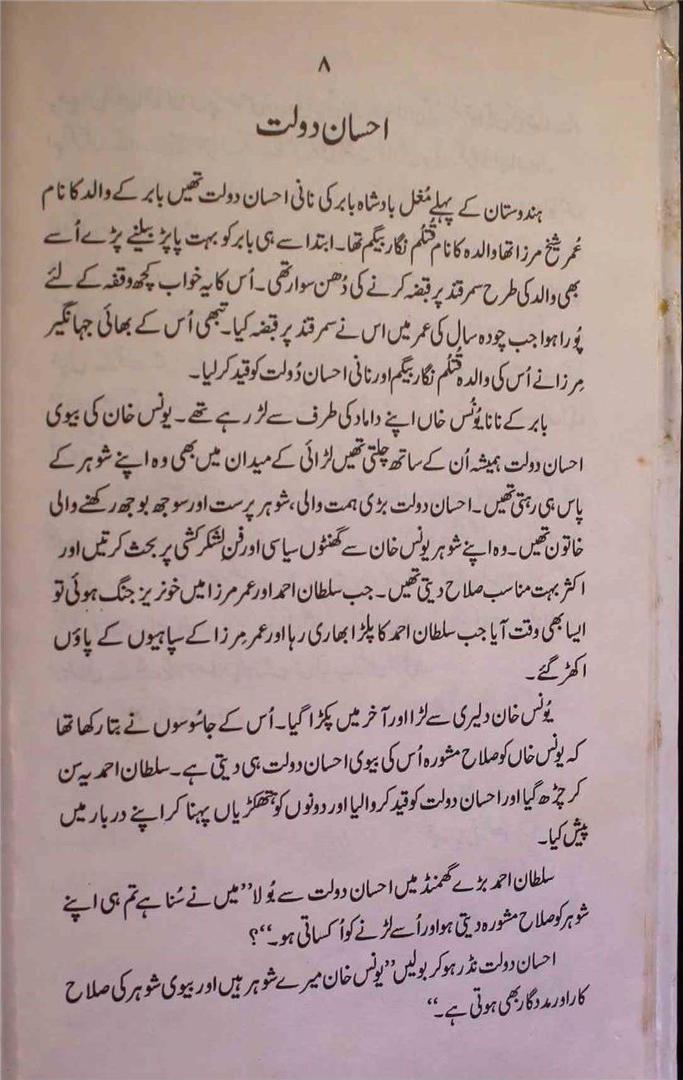 ۸
احسان دولت
ہندوستان کے پہلے مُغل بادشاہ بابر کی نانی احسان دولت تھیں بابر کے والد کا نام
عُمر شیخ مرزا تھا والدہ کا نام قتلُم نگار بیگم تھا۔ ابتدا سے ہی بابر کو بہت پاپڑ بیلنے پڑے اُسے
بھی والد کی طرح سمرقند پر قبضہ کرنے کی دُھن سوار تھی۔ اُس کا یہ خواب کچھ وقفہ کے لئے
پُورا ہوا جب چودہ سال کی عمر میں اس نے سمرقند پر قبضہ کیا۔ تبھی اُس کے بھائی جہانگیر
مِرزا نے اُس کی والدہ قُتلُم نگار بیگم اور نانی احسان دُولت کو قید کر لیا۔
بابر کے نانا یُونُس خاں اپنے داماد کی طرف سے لڑ رہے تھے۔ یونس خان کی بیوی
احسان دولت ہمیشہ اُن کے ساتھ چلتی تھیں لڑائی کے میدان میں بھی وہ اپنے شوہر کے
پاس ہی رہتی تھیں۔ احسان دولت بڑی ہمت والی، شوہر پرست اور سوجھ بوجھ رکھنے والی
خاتون تھیں۔ وہ اپنے شوہر یونس خان سے گھنٹوں سیاسی اور فنِ لشکر کشی پر بحث کرتیں اور
اکثر بہت مناسب صلاح دیتی تھیں۔ جب سلطان احمد اور عمر مرزا میں خونریز جنگ ہوئی تو
ایسا بھی وقت آیا جب سلطان احمد کا پلڑا بھاری رہا اور عمر مِرزا کے سپاہیوں کے پاؤں
اکھڑ گئے۔
یُونس خان دلیری سے لڑا اور آخر میں پکڑا گیا۔ اُس کے جاسُوسوں نے بتا رکھا تھا
کہ یونس خاں کو صلاح مشورہ اُس کی بیوی احسان دولت ہی دیتی ہے۔ سلطان احمد یہ سن
کر چڑھ گیا اور احسان دولت کو قید کروا لیا اور دونوں کو ہتھکڑیاں پہنا کر اپنے دربار میں
پیش کیا۔
سلطان احمد بڑے گھمنڈ میں احسان دولت سے بُولا ”میں نے سُنا ہے تم ہی اپنے
شوہر کو صلاح مشورہ دیتی ہو اور اُسے لڑنے کو اُکساتی ہو۔“؟
احسان دولت نڈر ہو کر بولیں ”یونس خان میرے شوہر ہیں اور بیوی شوہر کی صلاح
کار اور مددگار بھی ہوتی ہے۔“